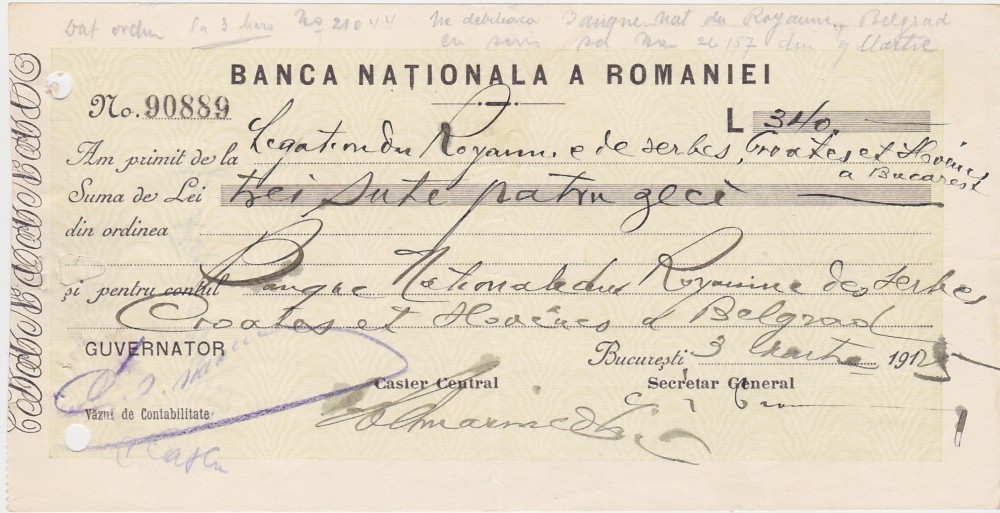 Dat ordin la 3 Mars No 21044 ne debitiara Banque Nat du Royaume, Belgrad
en sa No 26157 din 9 Martie
BANCA NAȚIONALA A ROMANIEI
No. 90889
L 340.
Am primit de la Legation du Royaume de Serbes, Croates et Slovènes
a Bucarest
Suma de Lei trei sute patru zeci
din ordinea
și pentru contul Banque Nationale du Royaume des Serbes
Croates et Slovènes à Belgrad
GUVERNATOR
București 3 Martie 192
Casier Central
Secretar General
Văzut de Contabilitate